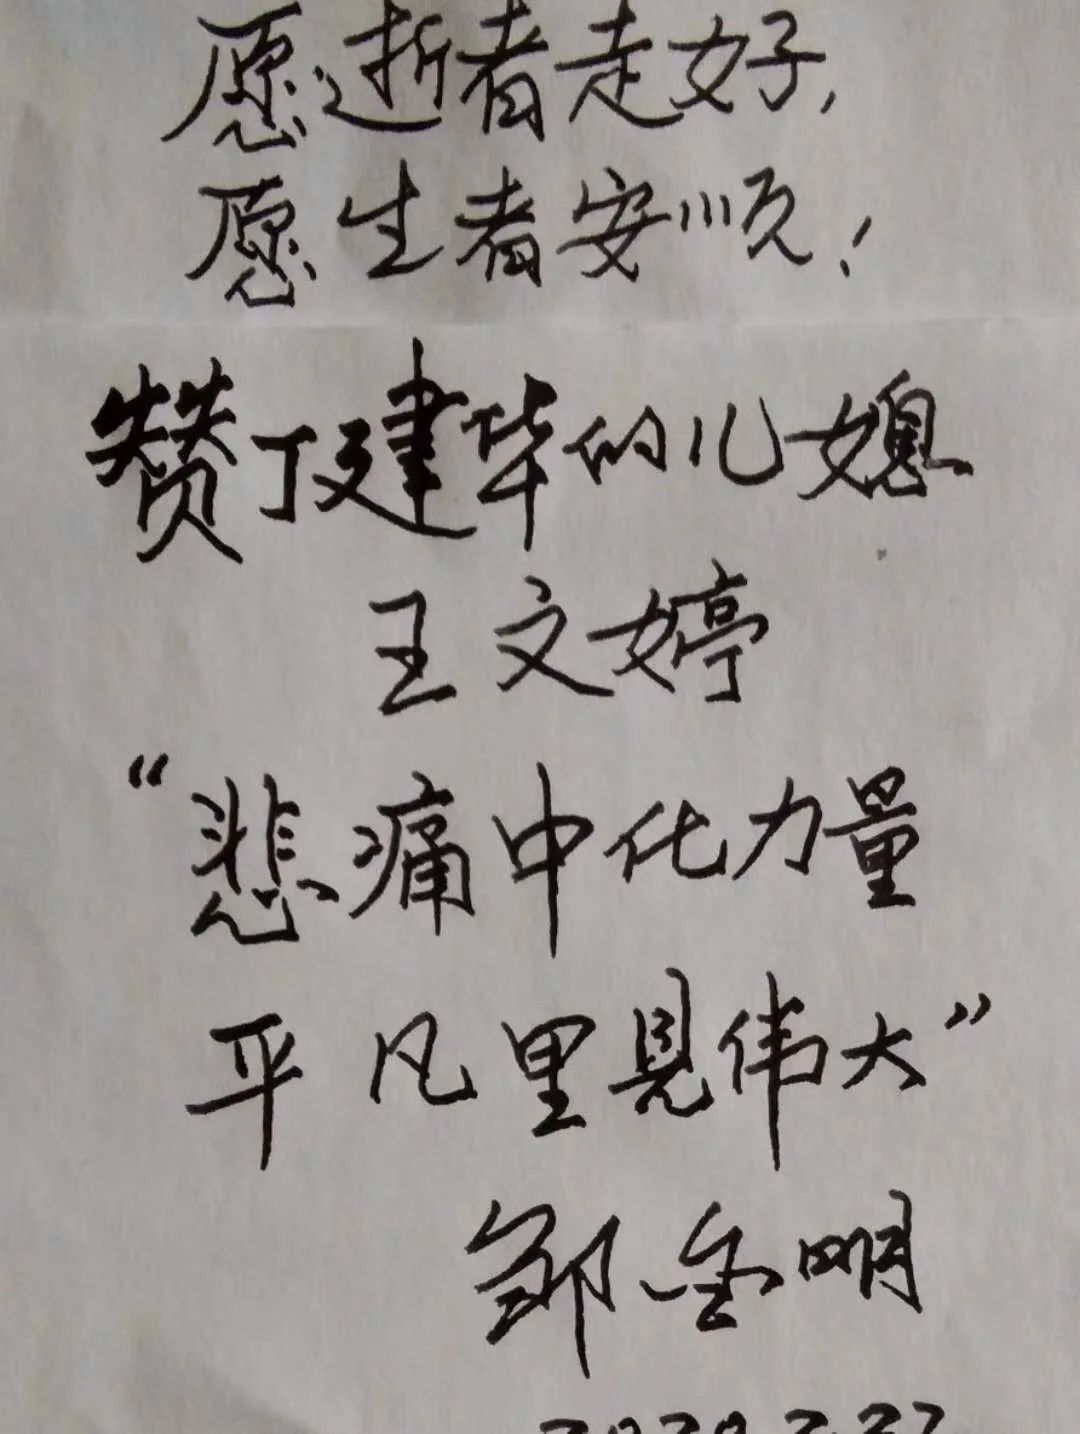 愿逝者走好，
愿生者安顺！
赞丁建华的儿媳
王文婷
“悲痛中化力量
平凡里见伟大”
邹金明